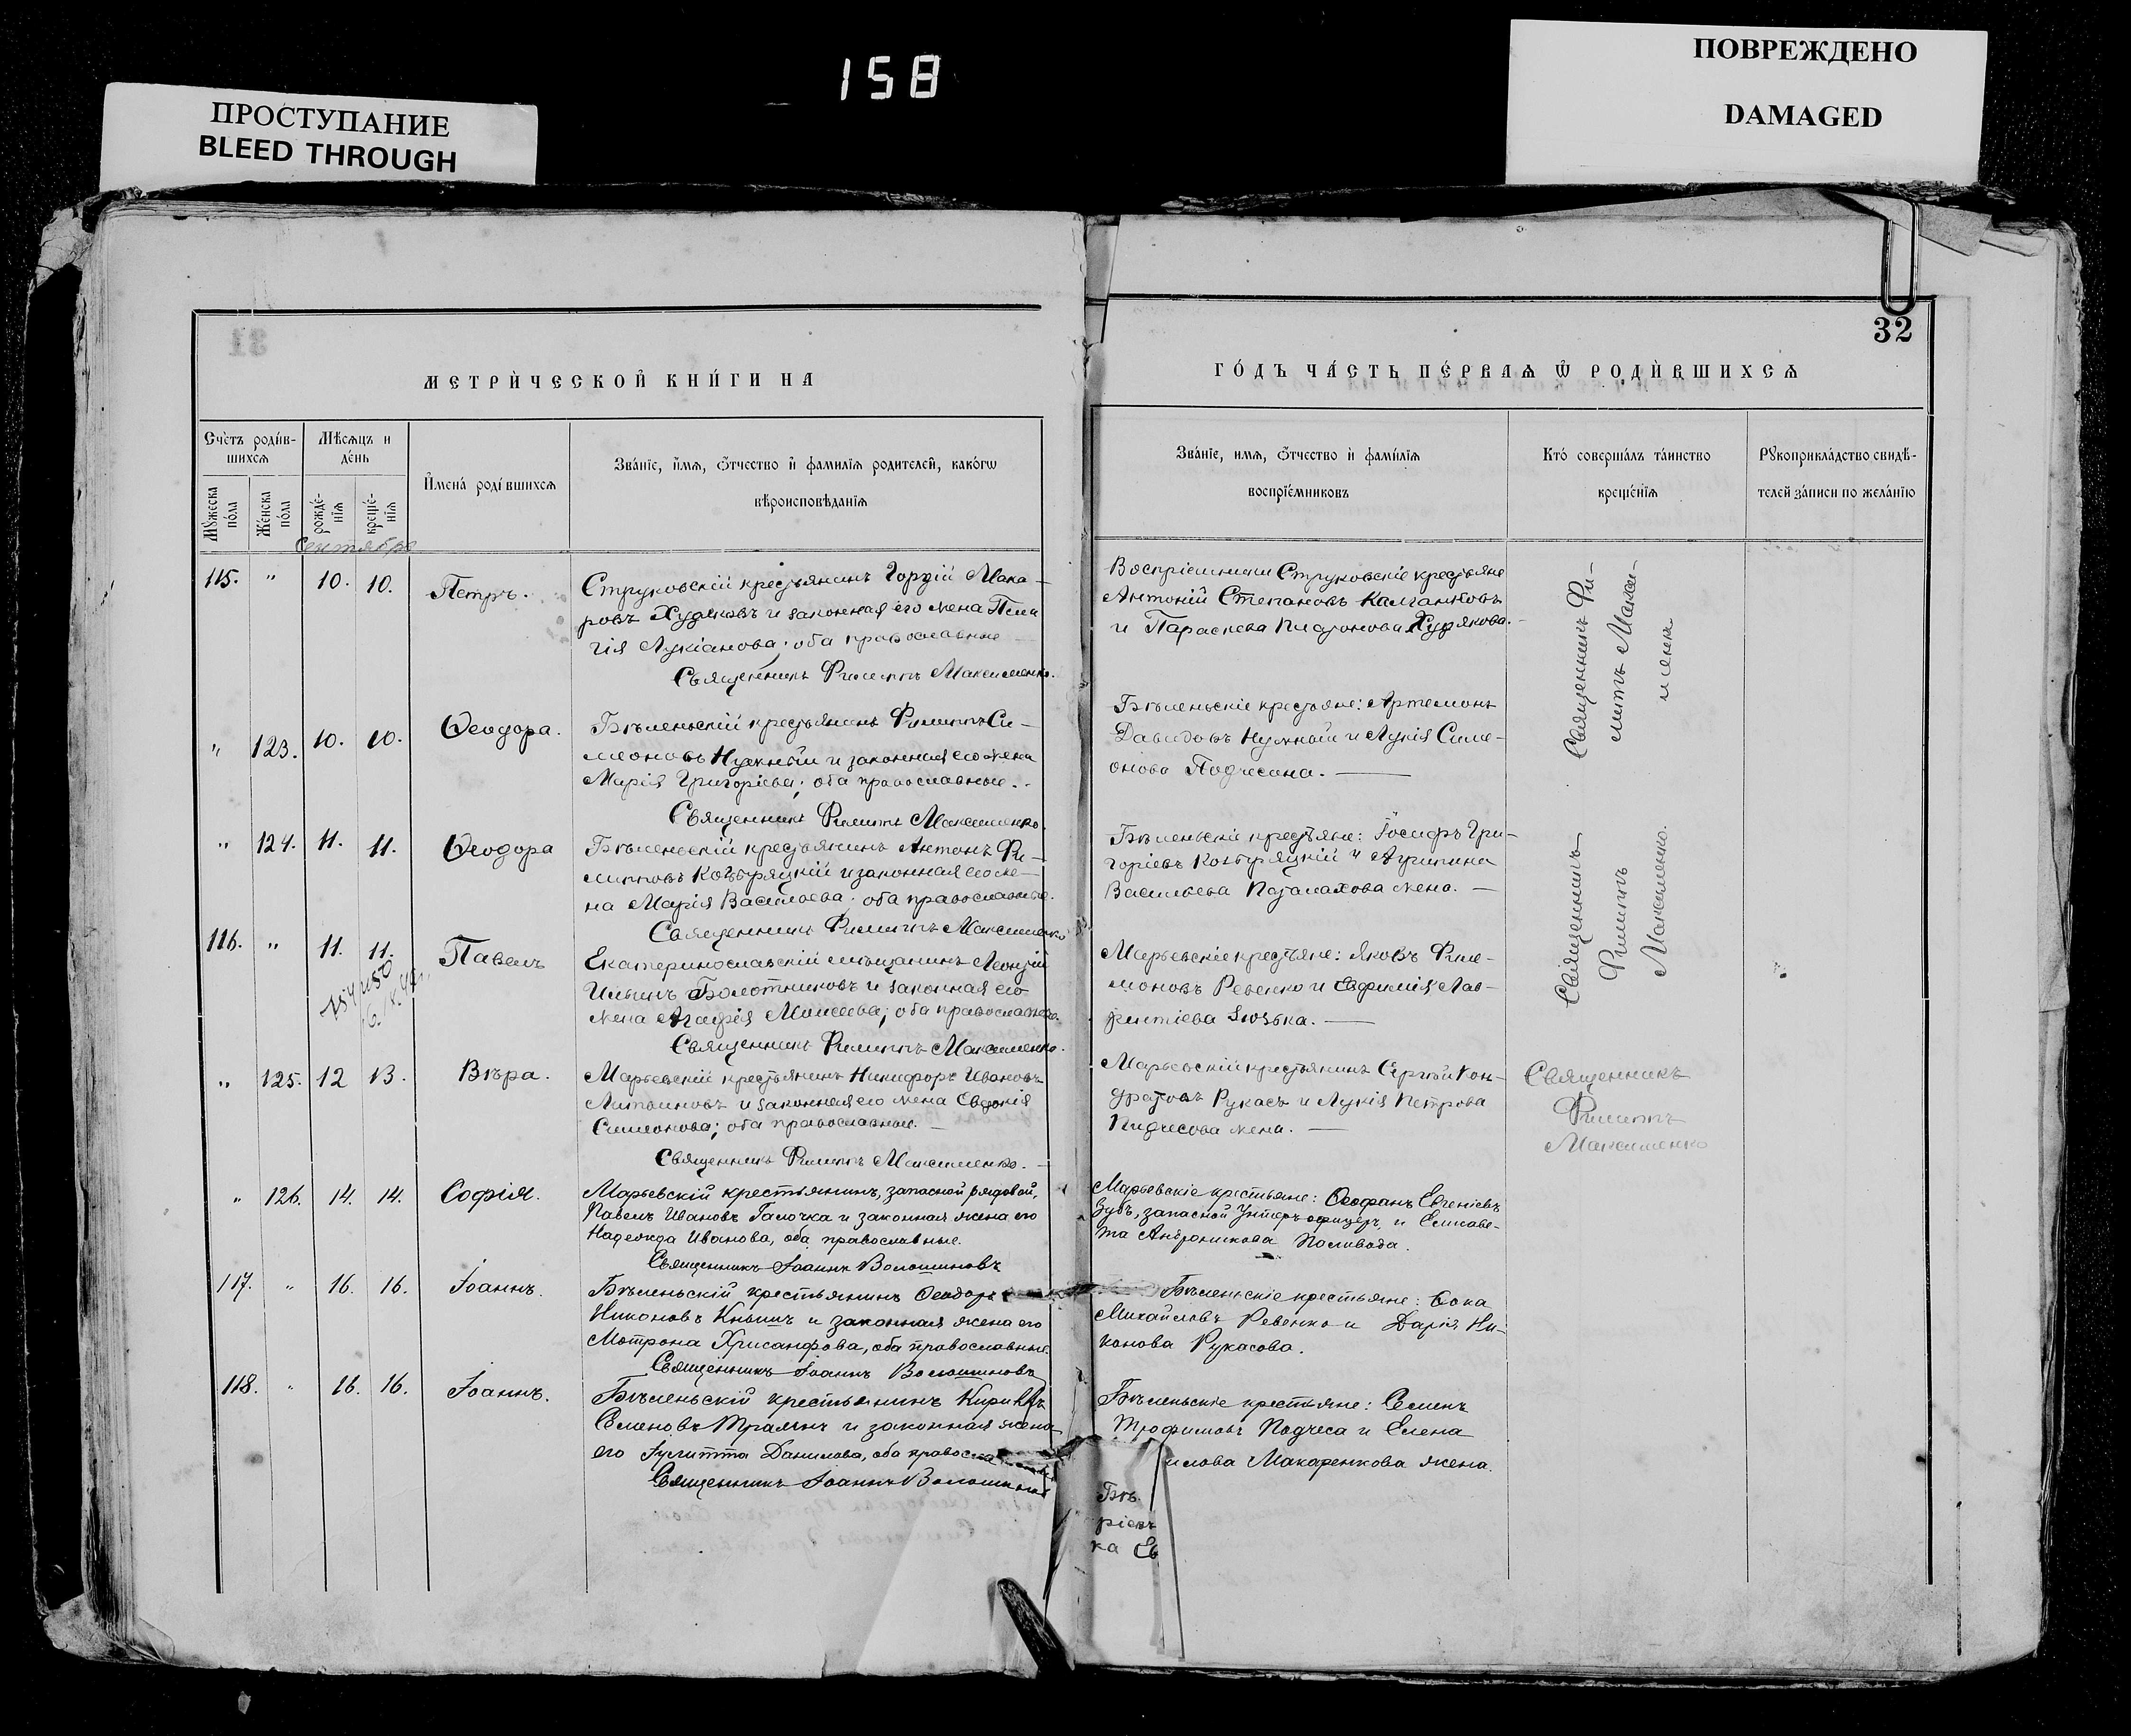 158
ПРОСТУПАНИЕ
BLEED THROUGH
ПОВРЕЖДЕНО
DAMAGED
31
32
МЕТРИ́ЧЕСКОЙ КНИ́ГИ НА
ГО́ДЪ ЧА́СТЬ ПЕ́РВАѦ Ѽ РОДИ́ВШИХСѦ
Сче́тъ роди́в-
шихсѧ
Мꙋ́жеска по́ла
Же́нска по́ла
Мѣ́сѧцъ и
де́нь
рожде́-
нїѧ
креще́-
нїѧ
И҆мена́ роди́вшихсѧ
Зва́нїе, и҆́мѧ, ѻ҆́тчество и҆ фами́лїѧ родителей, како́гѡ
вѣроисповѣ́данїѧ
Зва́нїе, имѧ, ѻ҆́тчество и҆ фами́лїѧ
воспрїе́мниковъ
Кто́ соверша́лъ та́инство
креще́нїѧ
Рꙋкоприкла́дство свидѣ́-
телей за́писи по жела́нїю
Сентября
115. " 10. 10. Петръ.
Струковскій крестьянинъ Гордій Мака-
ровъ Худяковъ и законная его жена Пела
гія Лукіанова; оба православные
Священникъ Филиппъ Максименко.
Воспріемники Струковскіе крестьяне
Антоній Степановъ
и Параскева Худякова.
Священникъ Фи-
липпъ Макси-
менко
" 123. 10. 10. Ѳеодора.
Бѣленьскій крестьянинъ Филиппъ Си-
меоновъ Нужный и законная его жена
Марія Григоріева; оба православные.
Священникъ Филиппъ Максименко.
Бѣленьскіе крестьяне: Артемонъ
Давидовъ Нужный и Лукія Симе-
онова Подчесана.
" 124. 11. 11. Ѳеодора
Бѣленьскій крестьянинъ Антонъ Фи-
липповъ Кобыряцкій и законная его же-
на Марія Васильева; оба православные.
Священникъ Филиппъ Максименко
Бѣленьскіе крестьяне: Іосифъ Гри-
горіевъ Кобыряцкій и Агрипина
Васильева Паталахова жена.
Священникъ
Филиппъ
Максименко.
116. " 11. 11. Павелъ
Екатеринославскій мѣщанинъ Леонтій
Ильинъ Болотниковъ и законная его
жена Агафія Моисеева; оба православные.
Священникъ Филиппъ Максименко.
Марьевскіе крестьяне: Яковъ Фили-
моновъ Ревенко и Евфимія Лав-
рентіева Зюзька.
" 125. 12 13. Вѣра.
Марьевскій крестьянинъ Никифоръ Ивановъ
Литвиновъ и законная его жена Евдокія
Симеонова; оба православные.
Священникъ Филиппъ Максименко.
Марьевскій крестьянинъ Сергій Кон-
дратовъ Рукасъ и Лукія Петрова
Пидчесова жена.
Священникъ
Филиппъ
Максименко
" 126. 14. 14. Софія.
Марьевскій крестьянинъ, запасной рядовой,
Павелъ Ивановъ Галочка и законная жена его
Надежда Иванова, оба православные.
Священникъ Іоаннъ Волошиновъ
Марьевскіе крестьяне: Ѳеофанъ Евгеніевъ
Зубъ, запасной унтеръ офицеръ, и Елисаве-
та Андроникова Поливода.
117. " 16. 16. Іоаннъ.
Бѣленьскій крестьянинъ Ѳеодоръ
Никоновъ Кнышъ и законная жена его
Мотрона Хрисанфова, оба православные.
Священникъ Іоаннъ Волошиновъ
Бѣленьскіе крестьяне: Ѳока
Михайловъ Ревенко и Дарія Ни-
конова Рукасова.
118. " 16. 16. Іоаннъ.
Бѣленьскій крестьянинъ Кириллъ
Семеновъ и законная жена
его Іулитта Данилова, оба правосла
Священникъ Іоаннъ Волошиновъ
Бѣленьскіе крестьяне: Семенъ
Трофимовъ Подчеса и Елена
илова Макаренкова жена.
Бѣ
ріевъ
ка Ев